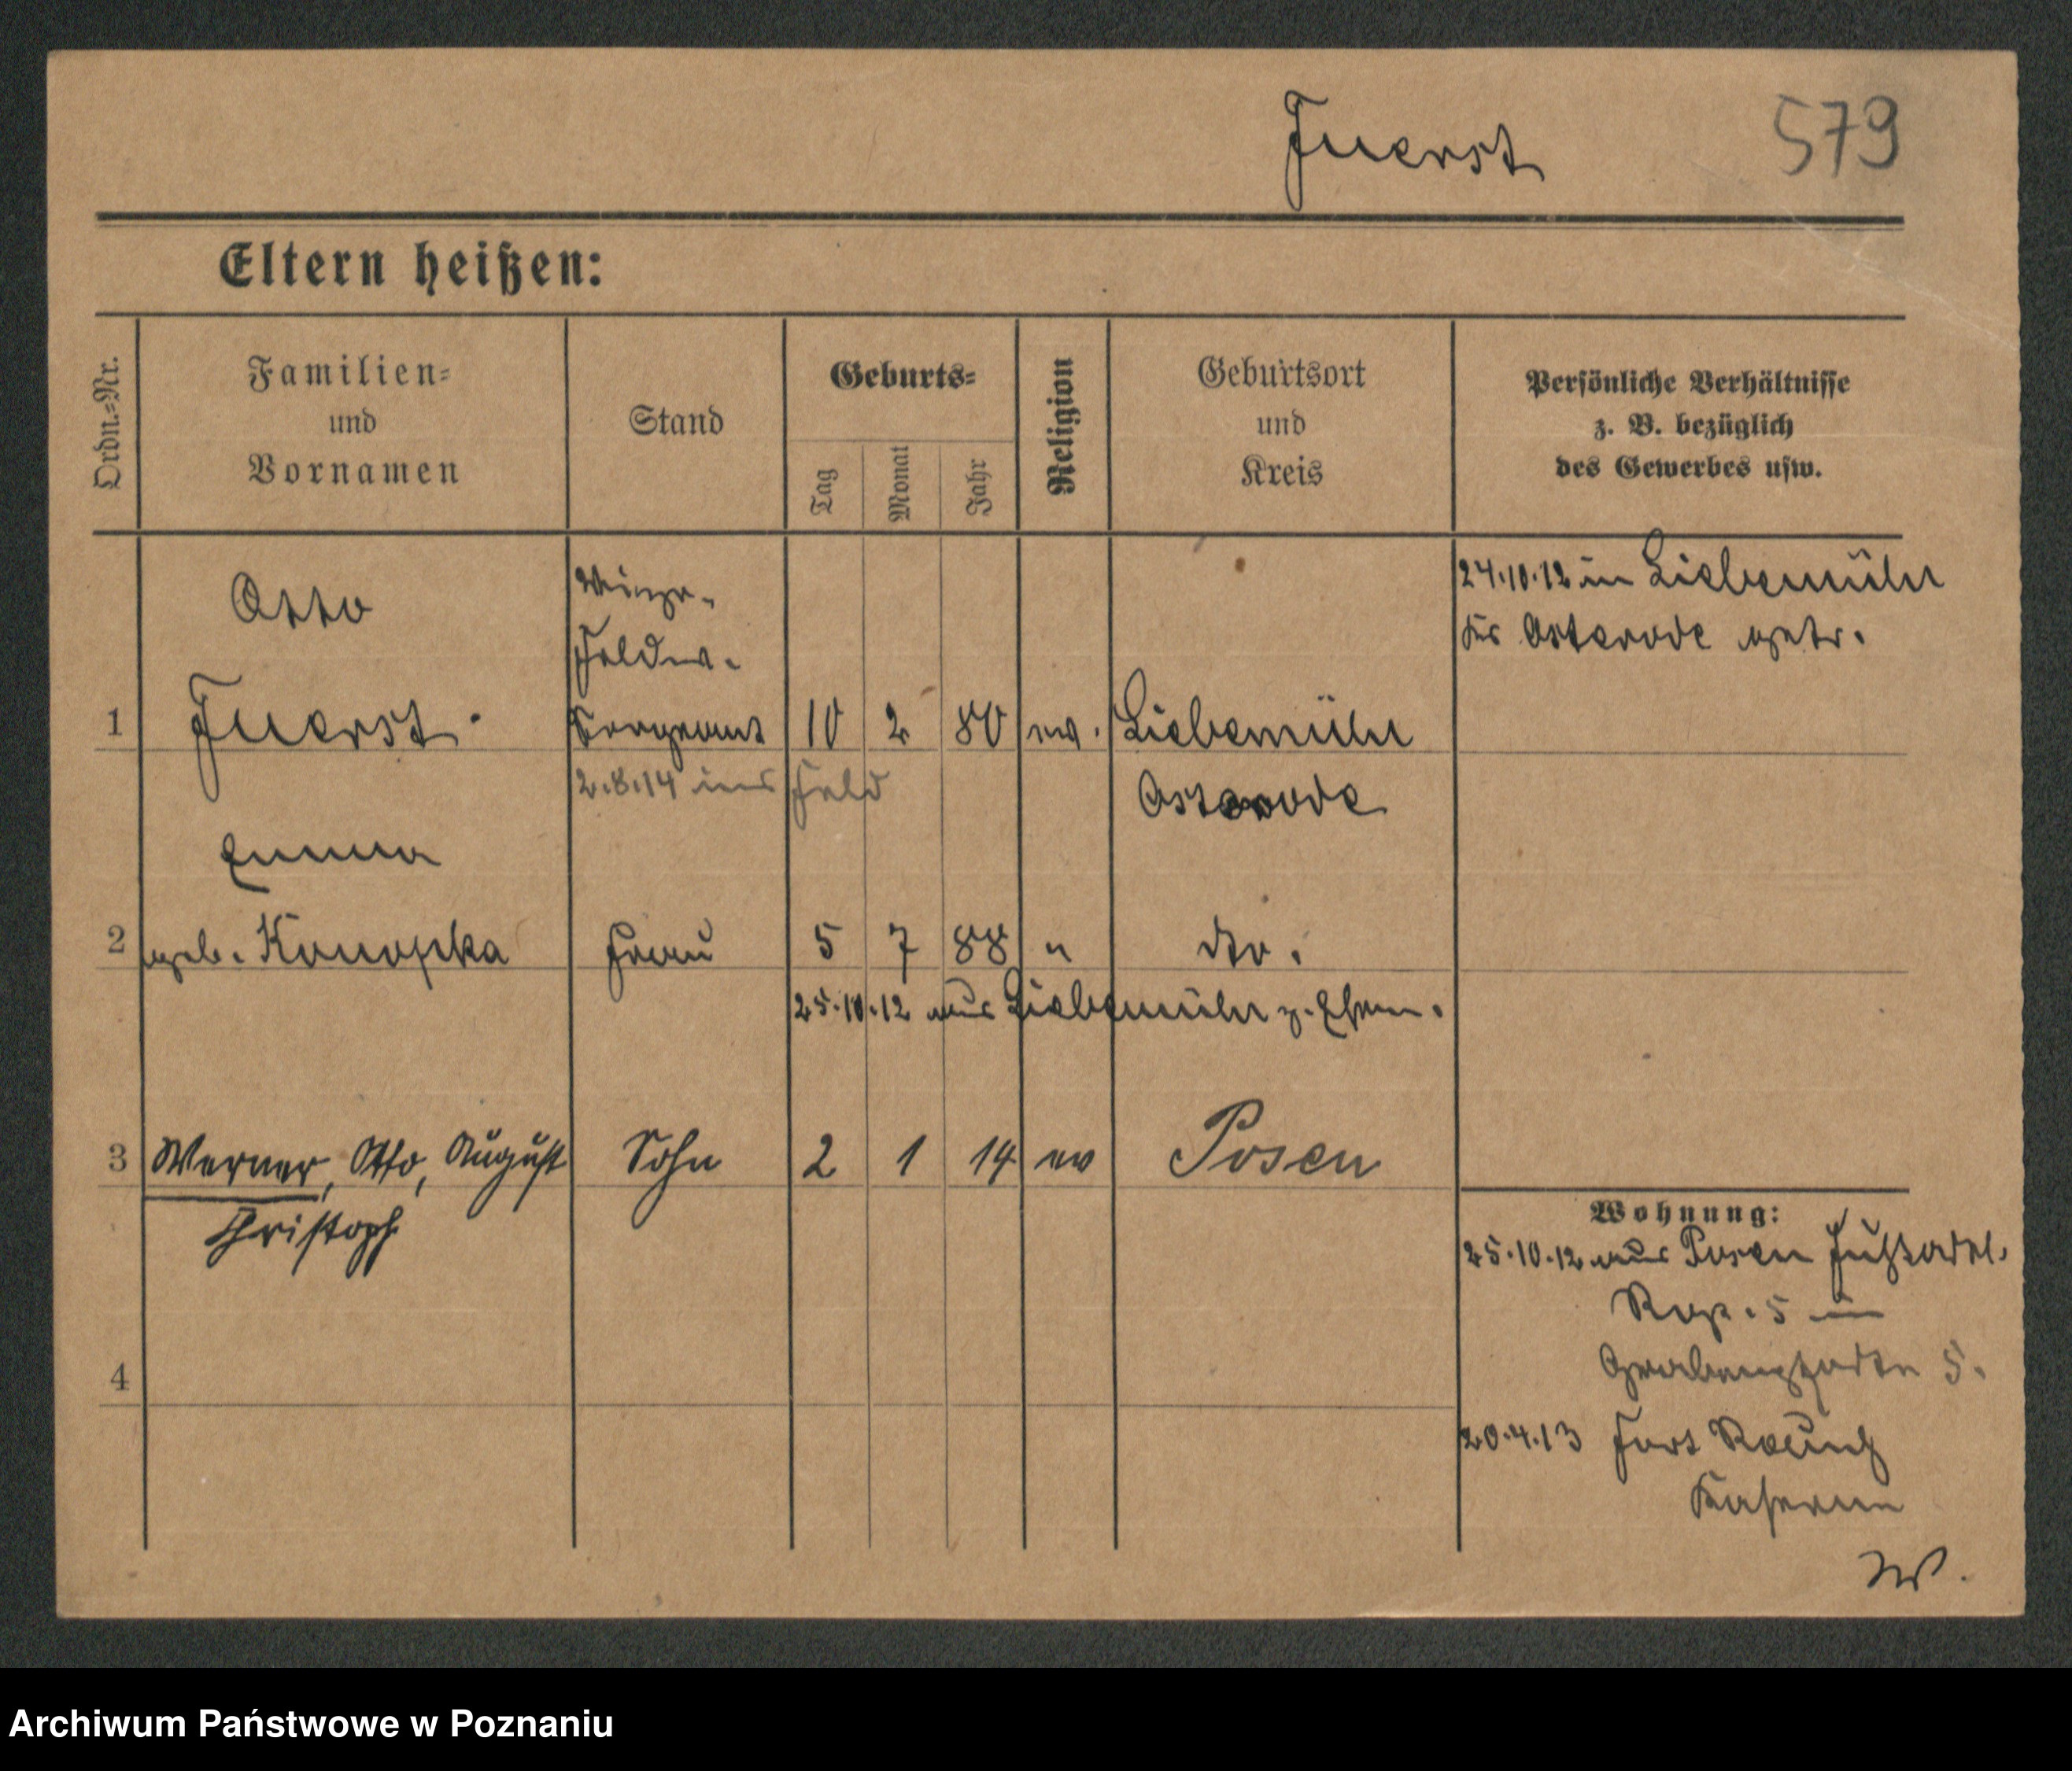 Fuerst 579
Eltern heißen:
Ordn.=Nr.
Familien=
und
Vornamen
Stand
Geburts=
Tag
Monat
Jahr
Religion
Geburtsort
und
Kreis
Persönliche Verhältnisse
z. B. bezüglich
des Gewerbes usw.
Otto
Vize-
Feldw.
1 Fuerst. Sergeant 10 2 80 ev. Liebemühl
Osterode
24.10.12 in Liebemühl
Krs Osterode getr.
2.8.14 ins Feld
Emma
2 geb. Konopka Frau 5 7 88 " dto.
25.10.12 aus Liebemühl z. Ehem.
3 Werner, Otto, August Sohn 2 1 14 ev Posen
Christoph
4
Wohnung:
25.10.12 aus Posen Fußartl.
Reg. 5 in
5.
20.4.13 Fort Rauch
Kaserne
W.
Archiwum Państwowe w Poznaniu